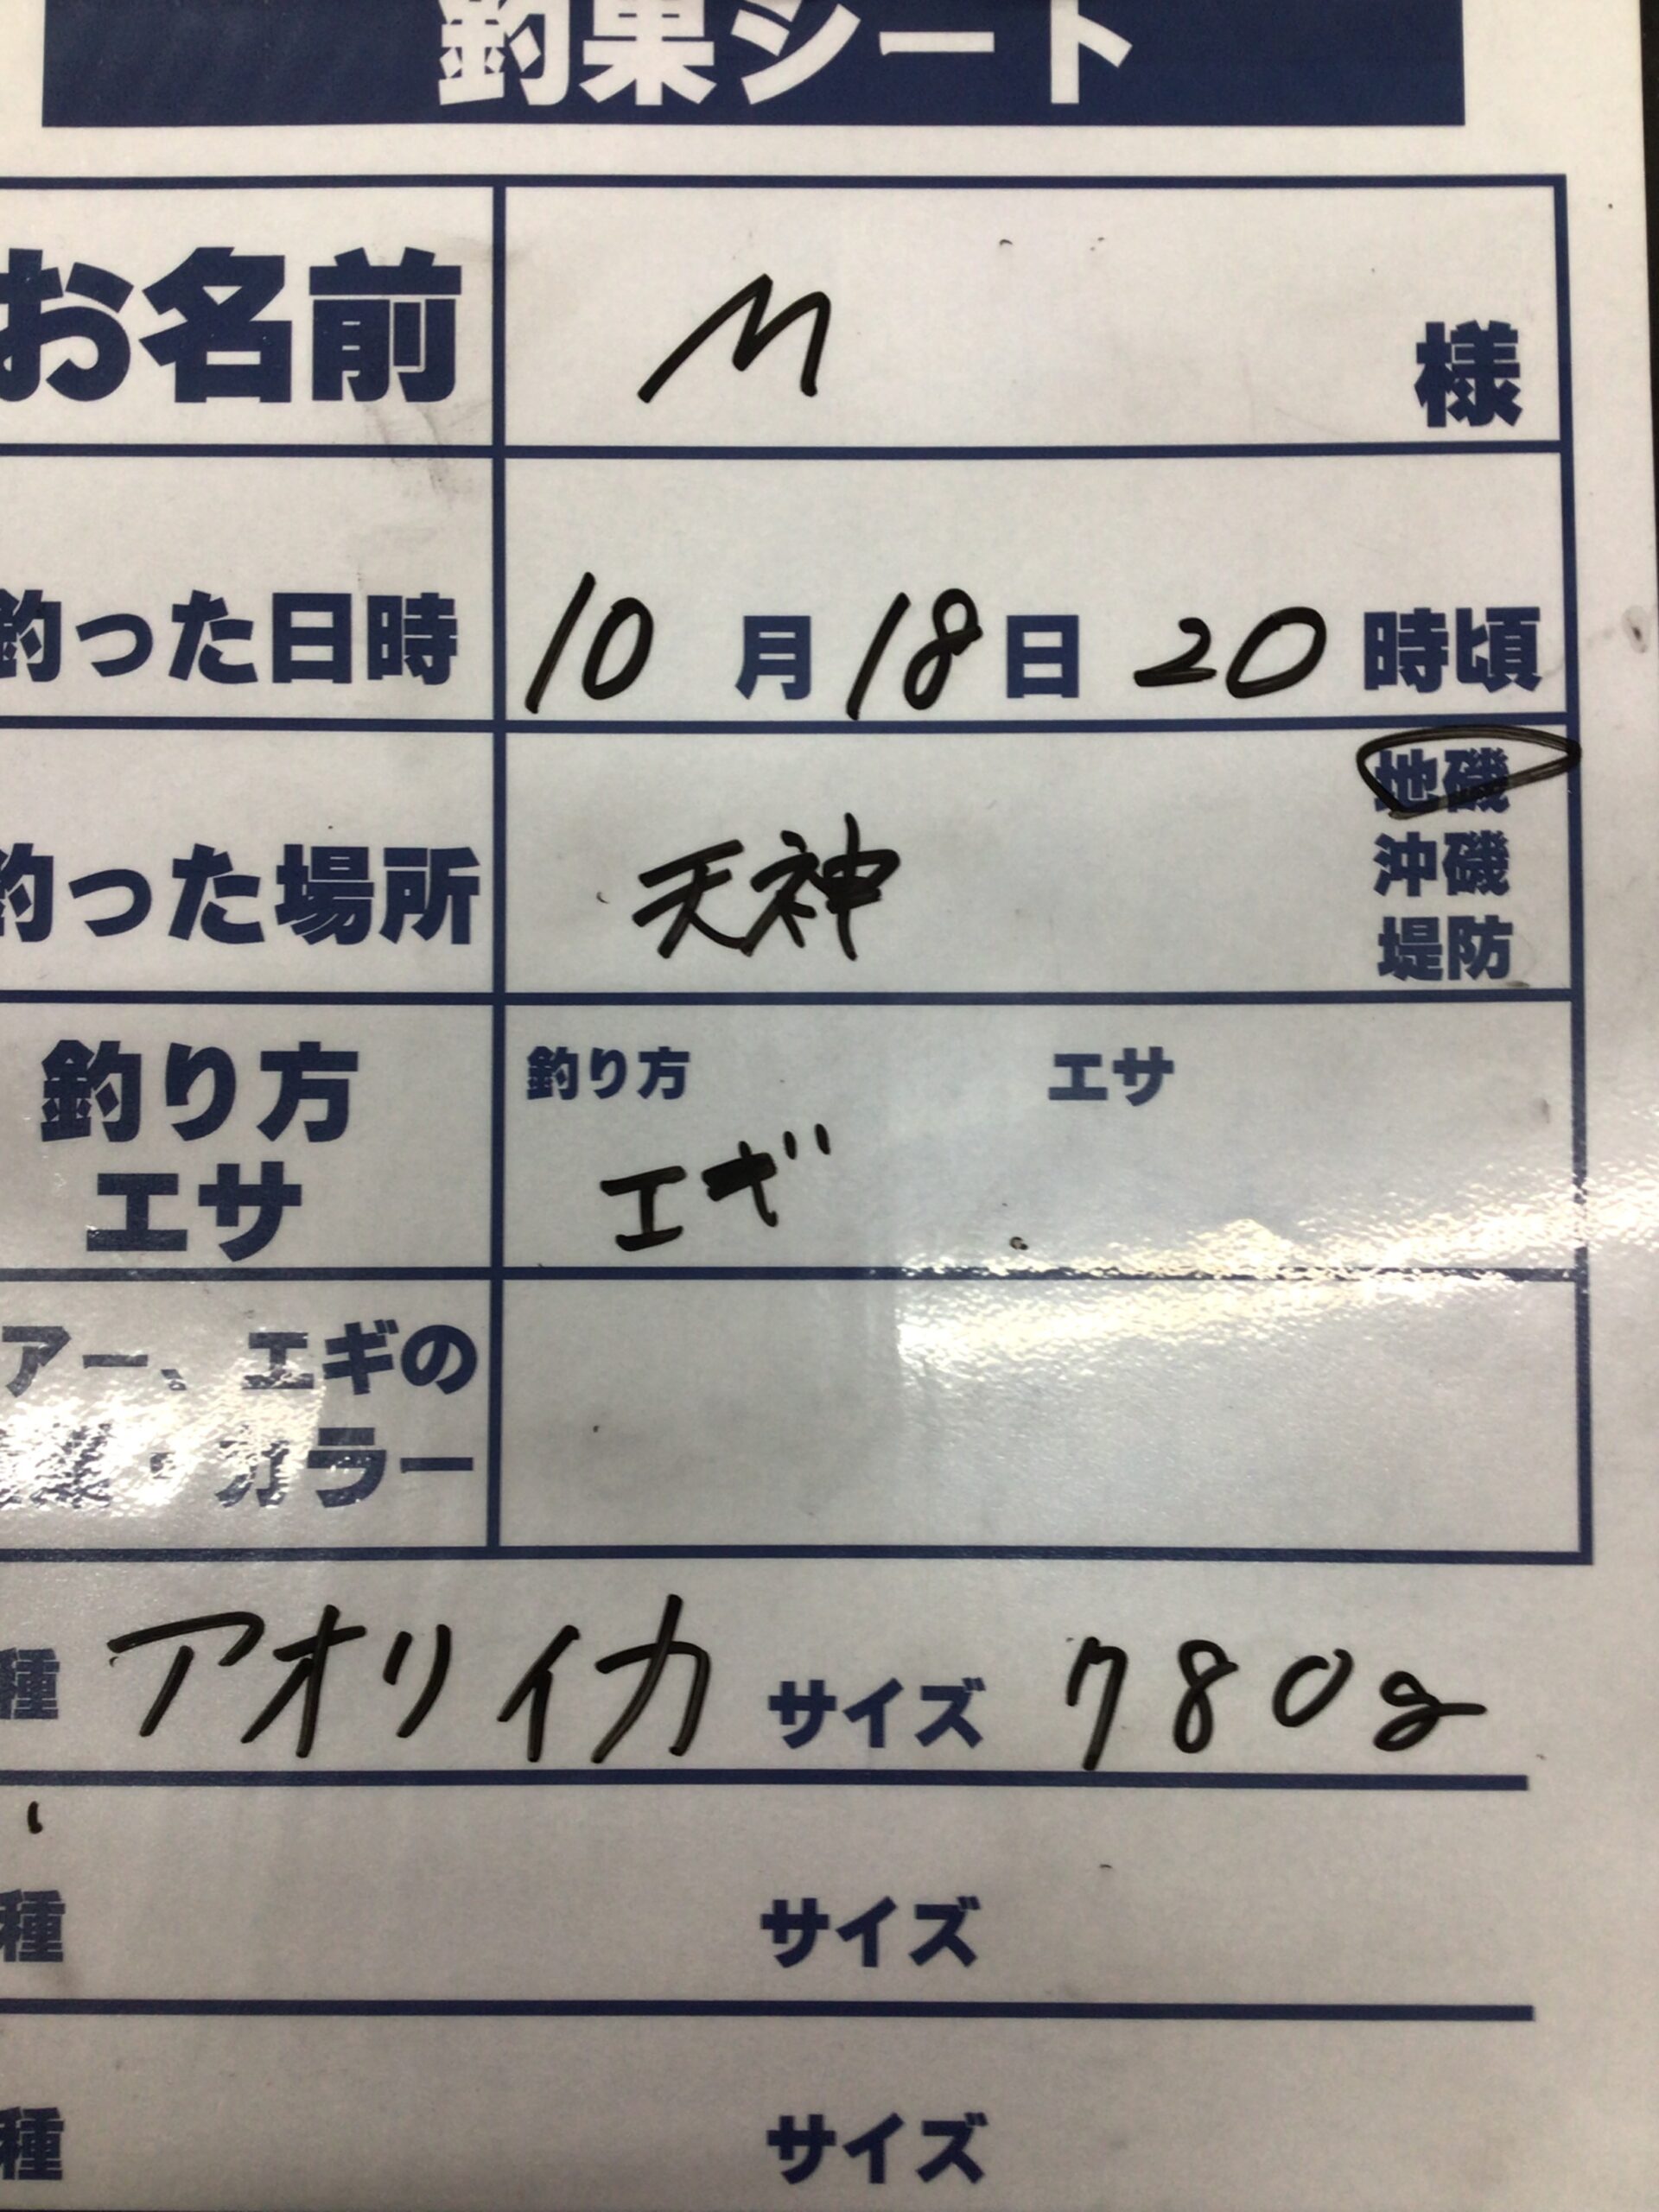 釣果シート
お名前 M 様
釣った日時 10月18日 20時頃
釣った場所 天神 地磯
沖磯
堤防
釣り方
エサ
釣り方 エサ
エギ
アー、エギの
・カラー
種 アオリイカ サイズ 780g
種 サイズ
種 サイズ